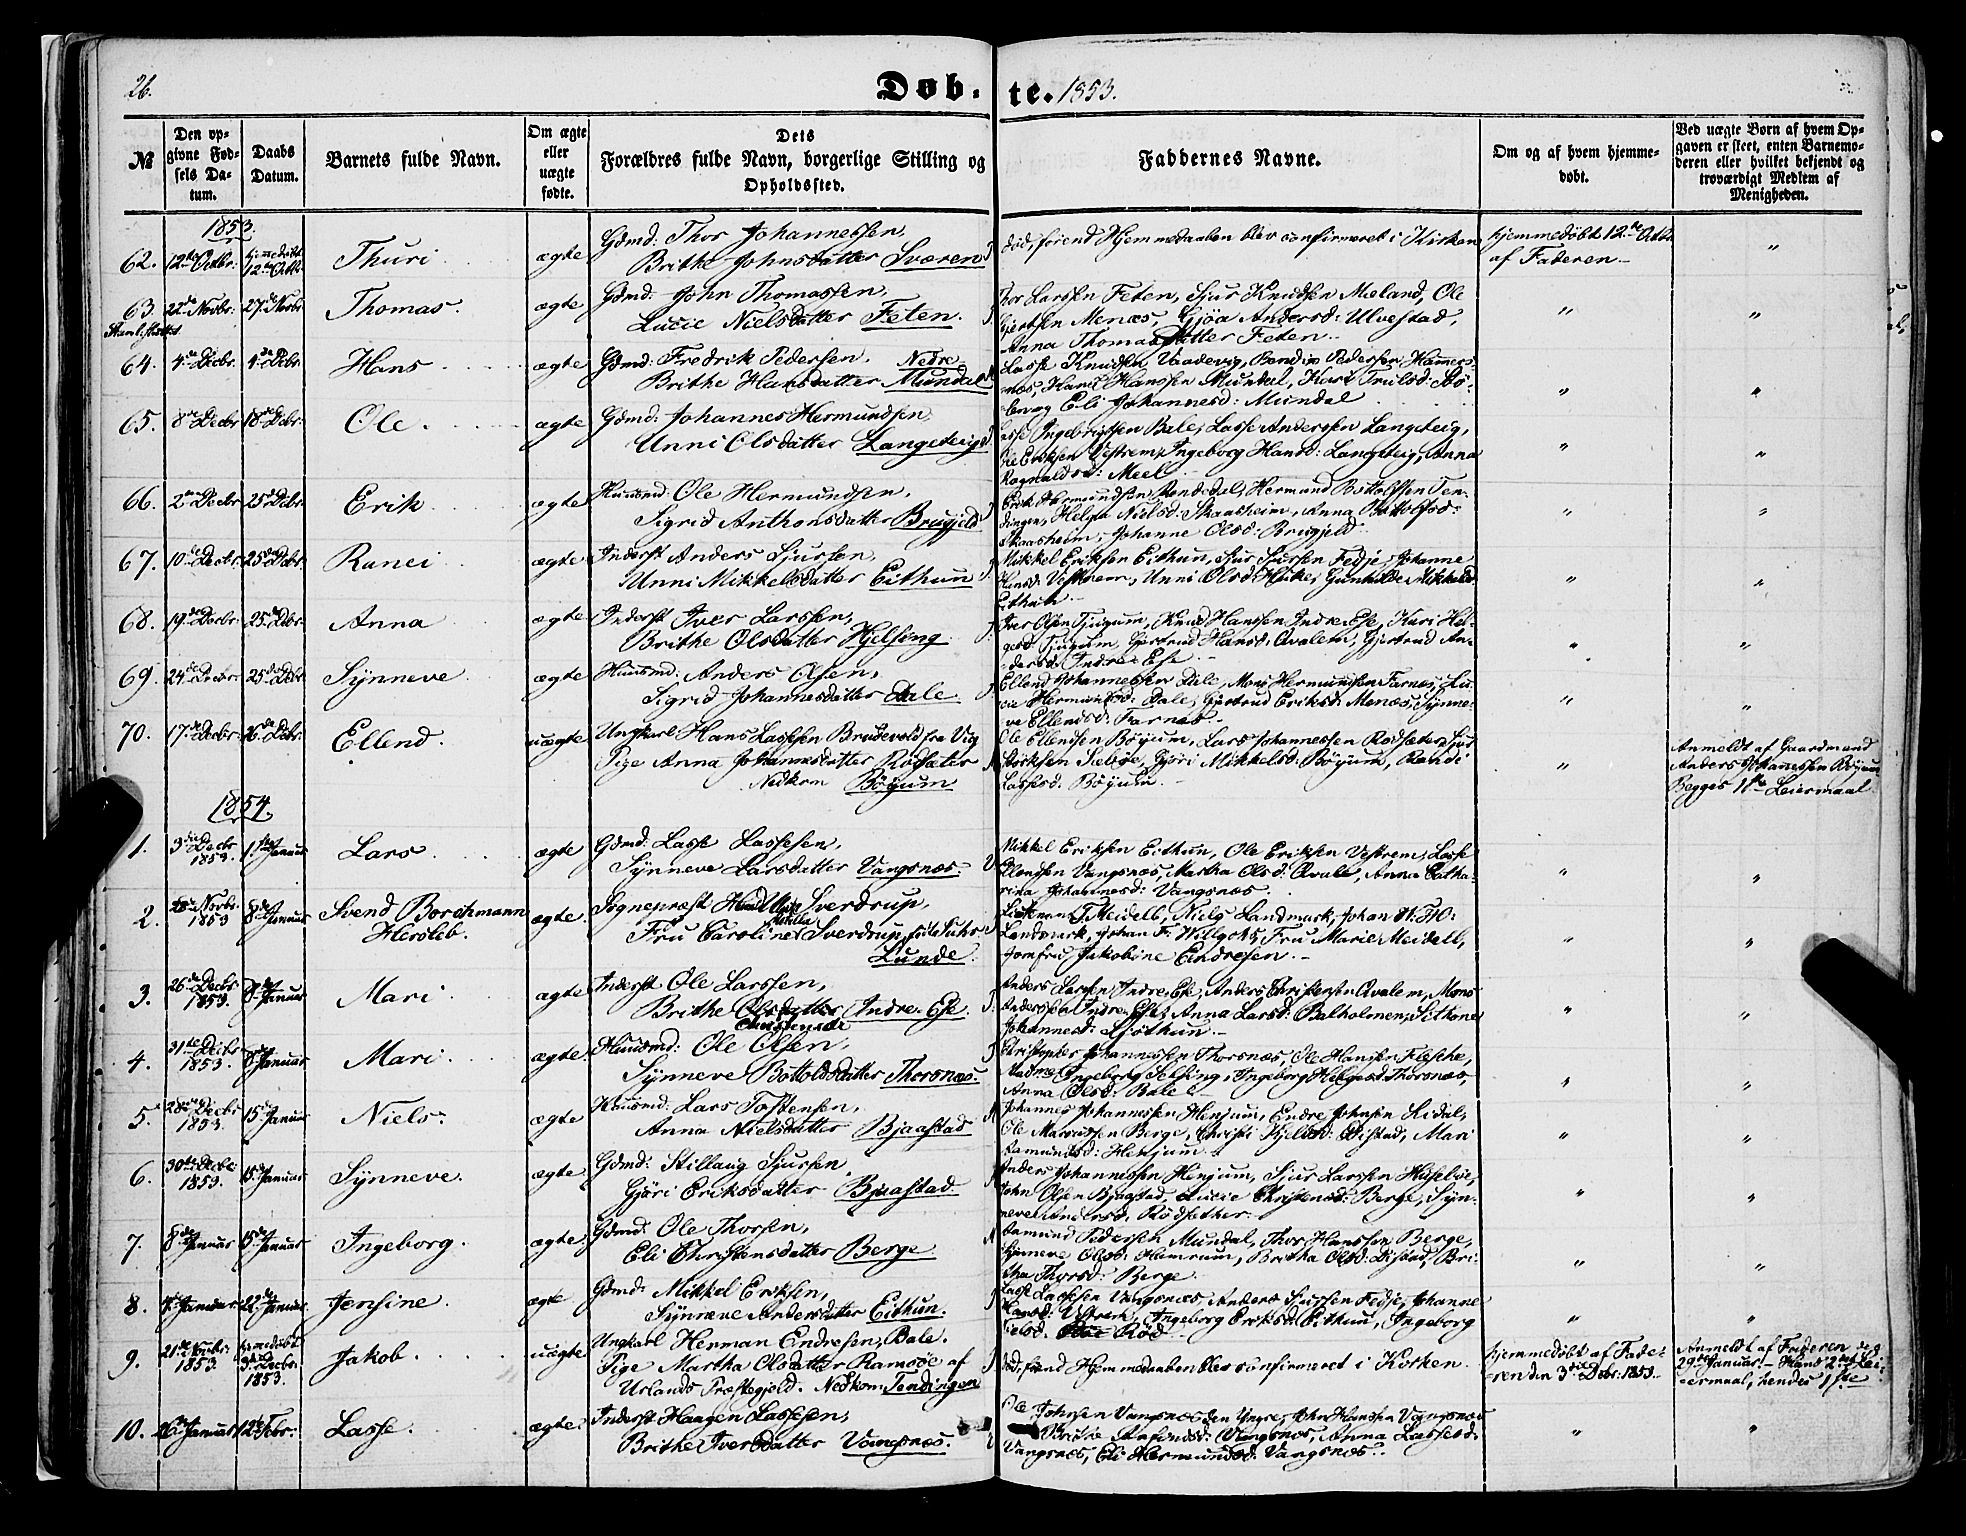 26.
Døb-te. 1853.
№
Den opgivne Fødsels Datum.
Daabs Datum.
Barnets fulde Navn.
Om ægte eller uægte fødte.
Dets Forældres fulde Navn, borgerlige Stilling og Opholdssted.
Faddernes Navne.
Om og af hvem hjemmedøbt.
Ved uægte Børn af hvem Opgaven er skeet, enten Barnemoderen eller hvilket bekjendt og troværdigt Medlem af Menigheden.
1853.
62. 12te Octbr: hjemmedøbt 12te Octbr Thuri ægte Gdmd: Thor Johannessen,
Brithe Johnsdatter Sværen
død, førend Hjemmedaaben blev confirmeret i Kirken
hjemmedøbt 12te Octbr
af Faderen —
63. 22de Novbr: 27de Novbr Thomas. ægte Gdmd: John Thomassen,
Lucie Nielsdatter Feten.
Thor Larssen Feten, Sjur Knudsen Mæland, Ole
Gjertsen Menæs, Gjøa Andersd: Ulvestad,
Anna Thomasdatter Feten.
64. 4de Decbr 4de Decbr. Hans ægte Gdmd: Fredrik Pedersen, Nedre
Brithe Hansdatter Mundal
Lasse Knudsen Vaadevig, Bendix Pedersen Hamers-
næs, Hans Hanssen Mundal, Kari Trulsd:
Eli Johannesd: Mundal
65. 8de Decbr 18de Decbr. Ole. ægte Gdmd: Johannes Hermundsen,
Unni Olsdatter Langedeig
Lasse Ingebrigtsen Bale, Lasse Anderssen Langeteig,
Ole Eriksen Vestrem, Ingeborg Hansd: Langeteig, Anna
Rognaldsd: Meel
66. 2den Decbr 25de Decbr. Erik ægte Huusmd: Ole Hermundsen,
Sigrid Anthonsdatter Brugjeld
Erik Hermundsen Rendedal, Hermund Bottolfsen Ten-
dingen, Helga Nielsd: Skaasheim, Anna Bottolfsd:
Skaasheim, Johanne Olsd: Brugjeld
67. 10de Decbr. 25de Decbr. Ranei ægte Inderst Anders Sjursen,
Unni Mikkelsdatter Eithun
Mikkel Eriksen Eithun, Sjur Sjursen Fedje, Johanne
Hansd: Vestrem, Unni Olsd: Huke, Gunhilde Mikkelsd:
Eithun
68. 19de Decbr. 25de Decbr. Anna ægte Inderst Iver Larssen,
Brithe Olsdatter Hjelsing
Iver Olsen Tjugum, Knud Hanssen Indre Ese, Kari Hel-
gesd: Tjugum, Gjertrud Hansd: Qvalem, Gjertrud An-
dersd: Indre Ese
69. 24de Decbr 25de Decbr. Synneve ægte Huusmd: Anders Olsen,
Sigrid Johannesdatter Dale
Ellend Johannessen Dale, Mons Hermundsen Farnes, Lu-
cie Hermundsd: Dale, Gjertrud Eriksd: Menæs, Synne-
ve Ellendsd: Farnes
70. 17de Decbr. 26de Decbr. Ellend. uægte Ungkarl Hans Lassesen Brudevold fra Vig
Pige Anna Johannesdatter Rødsæter
Nedkom Bøyum
Ole Ellendsen Bøyum, Lars Johannessen Rødsæter, Sjur
Størksen, Gjøri Mikkelsd: Bøyum, Randi
Lassesd: Bøyum.
Anmeldt af Gaardmand
Anders Johannessen Bøyum
Begges 1ste Leiermaal
1854.
1. 3die Decbr 1853. 1ste Januar Lars ægte Gdmd: Lasse Lassesen,
Synneve Larsdatter Vangsnæs.
Mikkel Eriksen Eithun, Ole Eriksen Vestrem, Lasse
Ellendsen Vangsnæs, Martha Olsd: Qvale, Anna Catha-
rina Johannesd: Vangsnæs
2. 28de Novbr. 1853 8de Januar Svend Borchmann
Hersleb. ægte. Sognepræst Harald Ulrik Sverdrup,
Fru Caroline Metella Sverdrup, født Suhr
Lunde.
Lieutenant J. Meidell, Niels Landmark, Johan
Landmark, Johan F. Willgohs, Fru Marie Meidell,
Jomfru Jakobine Endresen.
3. 26de Decbr 1853. 8de Januar Mari ægte Inderst Ole Larssen,
Brithe Olsdatter Christensdtr Indre Ese.
Anders Larsen Indre Ese, Anders Christensen Qvalem, Mons
Anderssen Indre Ese, Anna Larsd: Balholmen, Sithone
Johannesd: Sjøthun.
4. 31te Decbr 1853. 8de Januar Mari ægte Huusmd: Ole Olsen,
Synneve Bottoldsdatter Thorsnæs.
Christopher Johannessen Thorsnæs, Ole Hanssen Flesche,
Madme Ingeborg Selsing, Ingeborg Helgesd: Thorsnæs,
Anna Olsd: Bale
5. 28de Decbr 1853. 15de Januar Niels. ægte Huusmd: Lars Tostensen,
Anna Nielsdatter Bjaastad
Johannes Johannessen Henjum, Endre Johnsen Lidal,
Ole Marcussen Berge, Christi Kjelsd: Distad, Mari
Aamundsd: Henjum
6. 30te Decbr. 1853. 15de Januar Synneve. ægte Gdmd: Stillaug Sjursen,
Gjøri Eriksdatter Bjaastad
Anders Johannessen Henjum, Sjur Larssen Huseløe,
John Olsen Bjaastad, Lucie Christensd: Berge, Syn-
neve Andersd. Rødsether.
7. 8de Januar 15de Januar Ingeborg. ægte Gdmd: Ole Thorsen,
Eli Christensdatter Berge
Aamund Pedersen Mundal, Thor Hanssen Berge,
Synneve Olsd: Hamrum, Britha Olsd: Distad, Bri-
tha Thorsd: Berge
8. Januar 22de Januar Jensine. ægte Gdmd: Mikkel Eriksen,
Synneve Andersdatter Eithun.
Lasse Lassesen Vangsnæs, Anders Sjursen Fedje, Johanne
Hansd: Vestrem, Ingeborg Eriksd: Eithun, Ingeborg
Nielsd. Rød
9. 21de Novbr: 1853 hjemmedøbt 3die Decbr. 1853. Jakob. uægte Ungkarl Herman Endresen, Bale.
Pige Martha Olsdatter Ramsøe af
Urlands Præstegjeld. Nedkom Tendingen
død, førend Hjemmedaaben blev confirmeret i Kirken.
hjemmedøbt af Fade-
ren den 3die Decbr. 1853.
Anmeldt af Faderen den
29de Januar. – Hans 2det Lei-
ermaal, hendes 1ste
10. 26de Januar 12te Febr. Lasse. ægte. Inderst Haagen Lassesen,
Brithe Iversdatter Vangsnæs.
Ole Johnsen Vangsnæs den Yngre, John Hansen Vangsnæs
Brithe Vangsnæs, Anna Lassesd.
Vangsnæs, Eli Hermundsd. Vangsnæs.